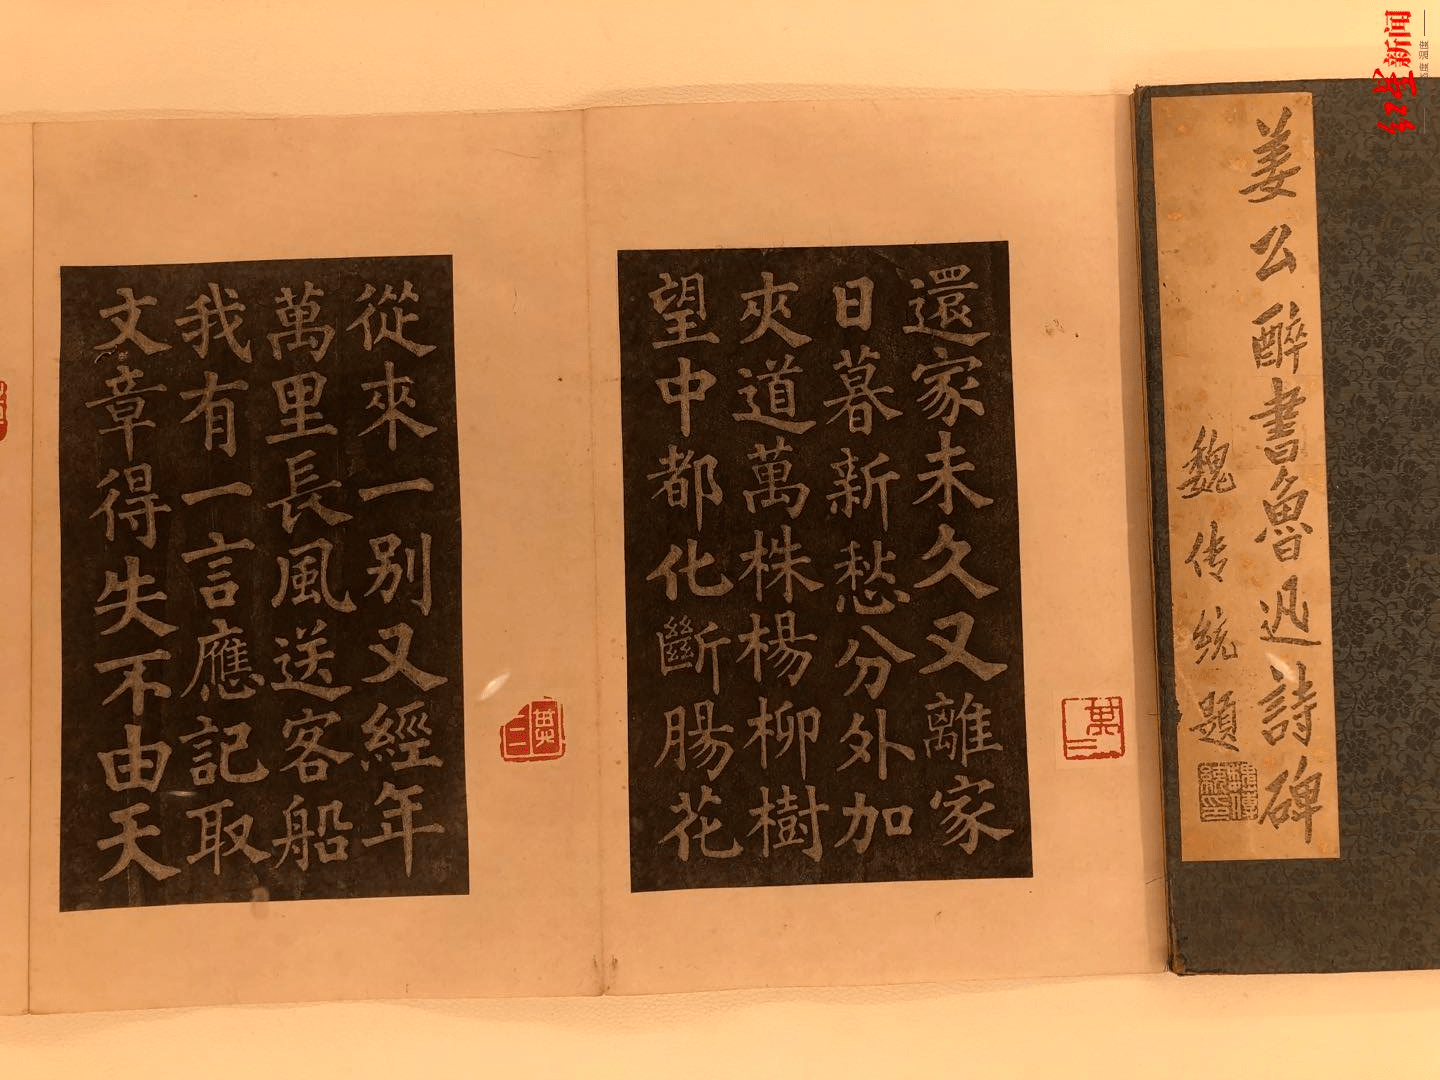 红星新闻
姜公醉書魯迅詩碑
魏传统题
還家未久又離家
日暮新愁分外加
夾道萬株楊柳樹
望中都化斷腸花
從來一別又經年
萬里長風送客船
我有一言應記取
文章得失不由天